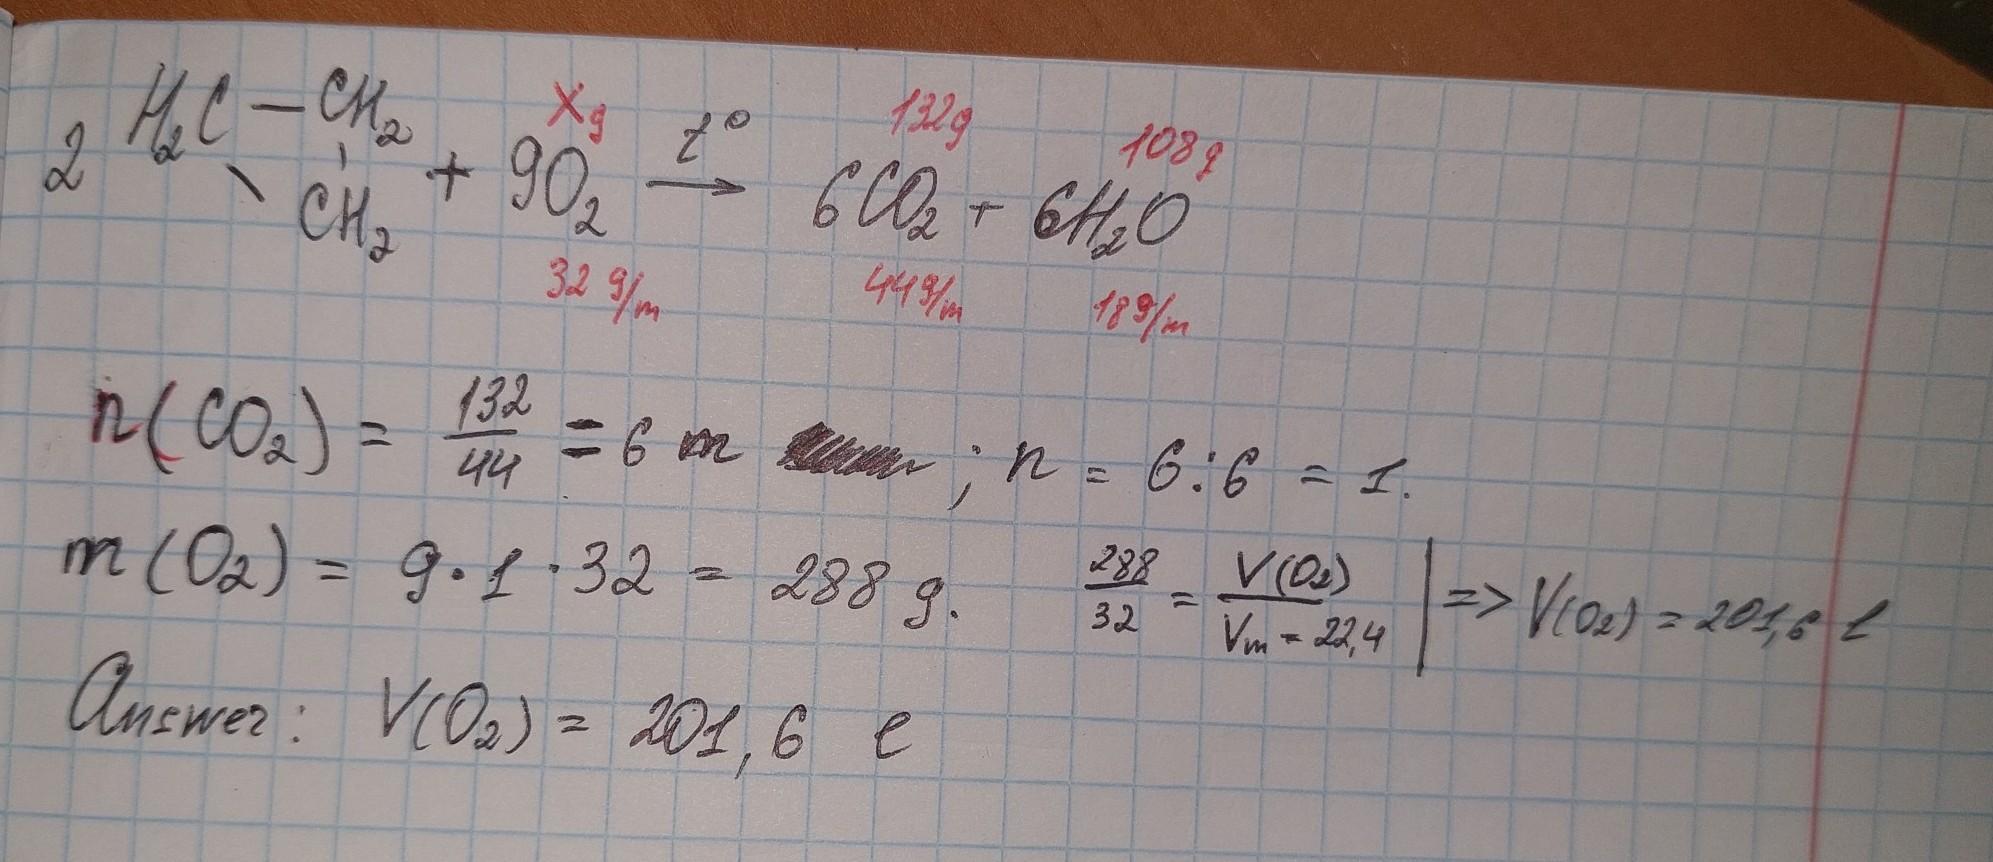 Xg 132g 108g
2 H₂C — CH₂ \ CH₂ + 9O₂ t° → 6CO₂ + 6H₂O
32 g/m 44g/m 18g/m
n(CO₂) = 132/44 = 6 m ; n = 6:6 = 1.
m(O₂) = 9·1·32 = 288 g. 288/32 = V(O₂)/Vm = 22,4 | => V(O₂) = 201,6 l
Answer: V(O₂) = 201,6 l